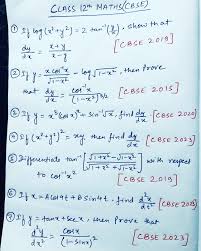 CLASS 12th MATHS(CBSE)
① If log(x²+y²) = 2 tan⁻¹(y/x), show that
dy/dx = (x+y)/(x-y) [CBSE 2019]
② If y = x cos⁻¹x/√(1-x²) - log√(1-x²), then Prove
that dy/dx = cos⁻¹x/(1-x²)^(3/2) [CBSE 2015]
③ If y = x³(cos x)ˣ + sin⁻¹√x, find dy/dx [CBSE 2020]
④ If (x²+y²)² = xy, then find dy/dx [CBSE 2023]
⑤ Differentiate tan⁻¹[(√(1+x²)+√(1-x²))/(√(1+x²)-√(1-x²))] with respect
to cos⁻¹x² [CBSE 2019]
⑥ If x = A cos4t + B sin4t, find d²x/dt² [CBSE 2023]
⑦ If y = tanx+secx, then Prove that
d²y/dx² = cosx/(1-sinx)² [CBSE 2023]